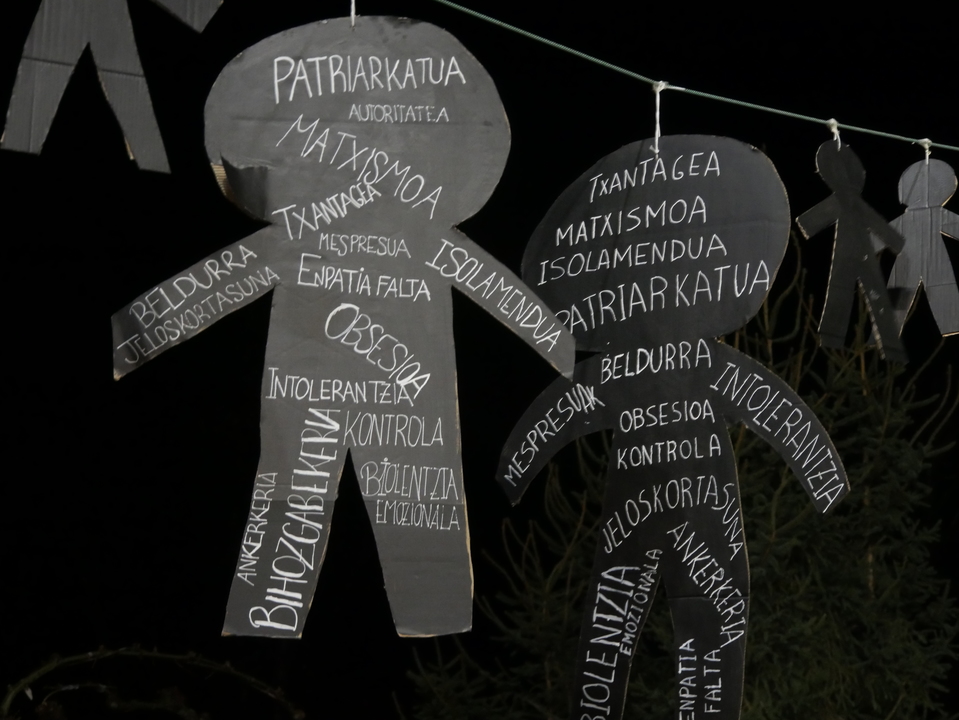 PATRIARKATUA
AUTORITATEA
MATXISMOA
TXANTAGEA
MESPRESUA
ENPATIA FALTA
BELDURRA
JELOSKORTASUNA
ISOLAMENDUA
OBSESIOA
INTOLERANTZIA
KONTROLA
BIOLENTZIA
EMOZIONALA
ANKERKERIA
BIHOZGABEKERIA
TXANTAGEA
MATXISMOA
ISOLAMENDUA
PATRIARKATUA
BELDURRA
MESPRESUAK
INTOLERANTZIA
OBSESIOA
KONTROLA
JELOSKORTASUNA
ANKERKERIA
BIOLENTZIA
EMOZIONALA
ENPATIA
FALTA